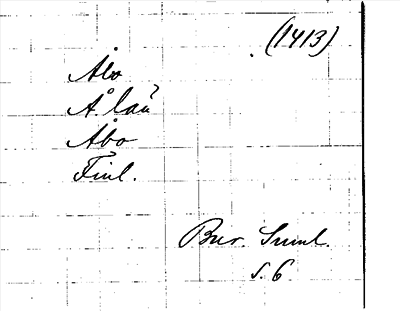 (1413)
Åbo
Å. län
Åbo
Finl.
Bur. Suml.
s. 6.